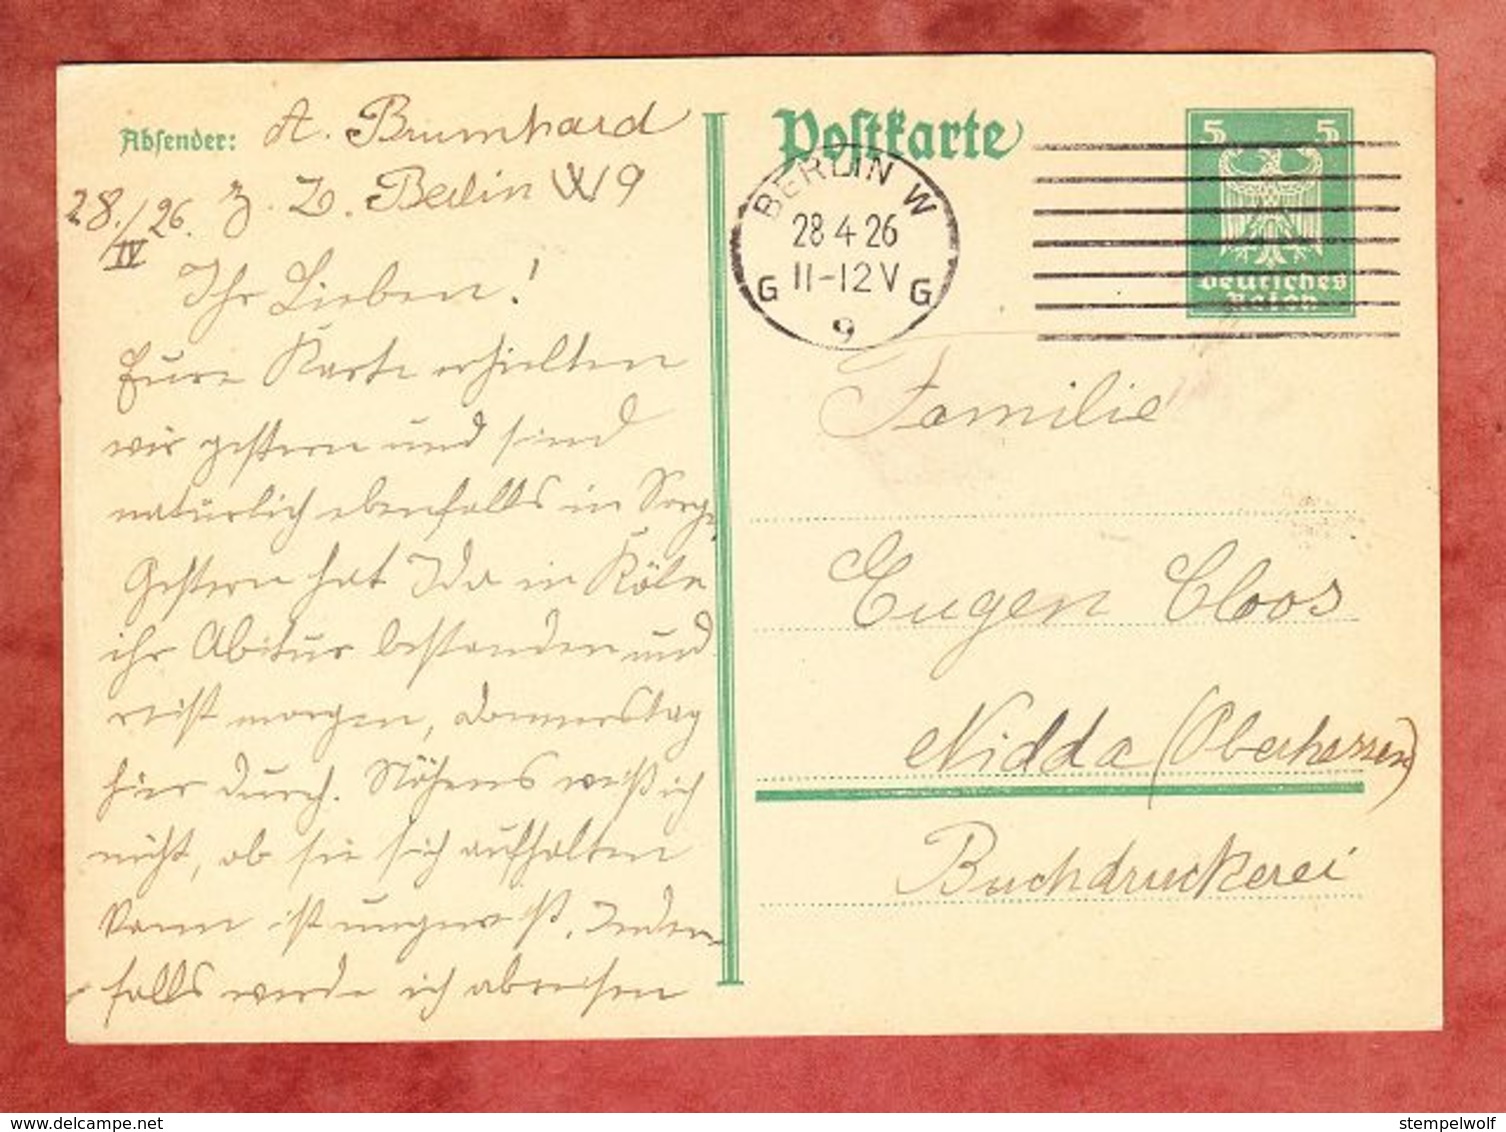 Absender: A. Brumhard
z. Z. Berlin W 9
28./IV 26.
Ihr Lieben!
Eure Karte erhielten
wir gestern und sind
natürlich ebenfalls in Sorge,
Gestern hat Ida in Köln
ihr Abitur bestanden und
reist morgen, Donnerstag
hier durch. Näheres weiß ich
nicht, ob sie sich aufhalten
kann ist ungewiß. Jeden-
falls werde ich abreisen
Postkarte
5 5
Deutsches
Reich
BERLIN W
28 4 26
11-12 V
G G
9
Familie
Eugen Cloos
Nidda (Oberhessen)
Buchdruckerei
www.delcampe.net
stempelwolf